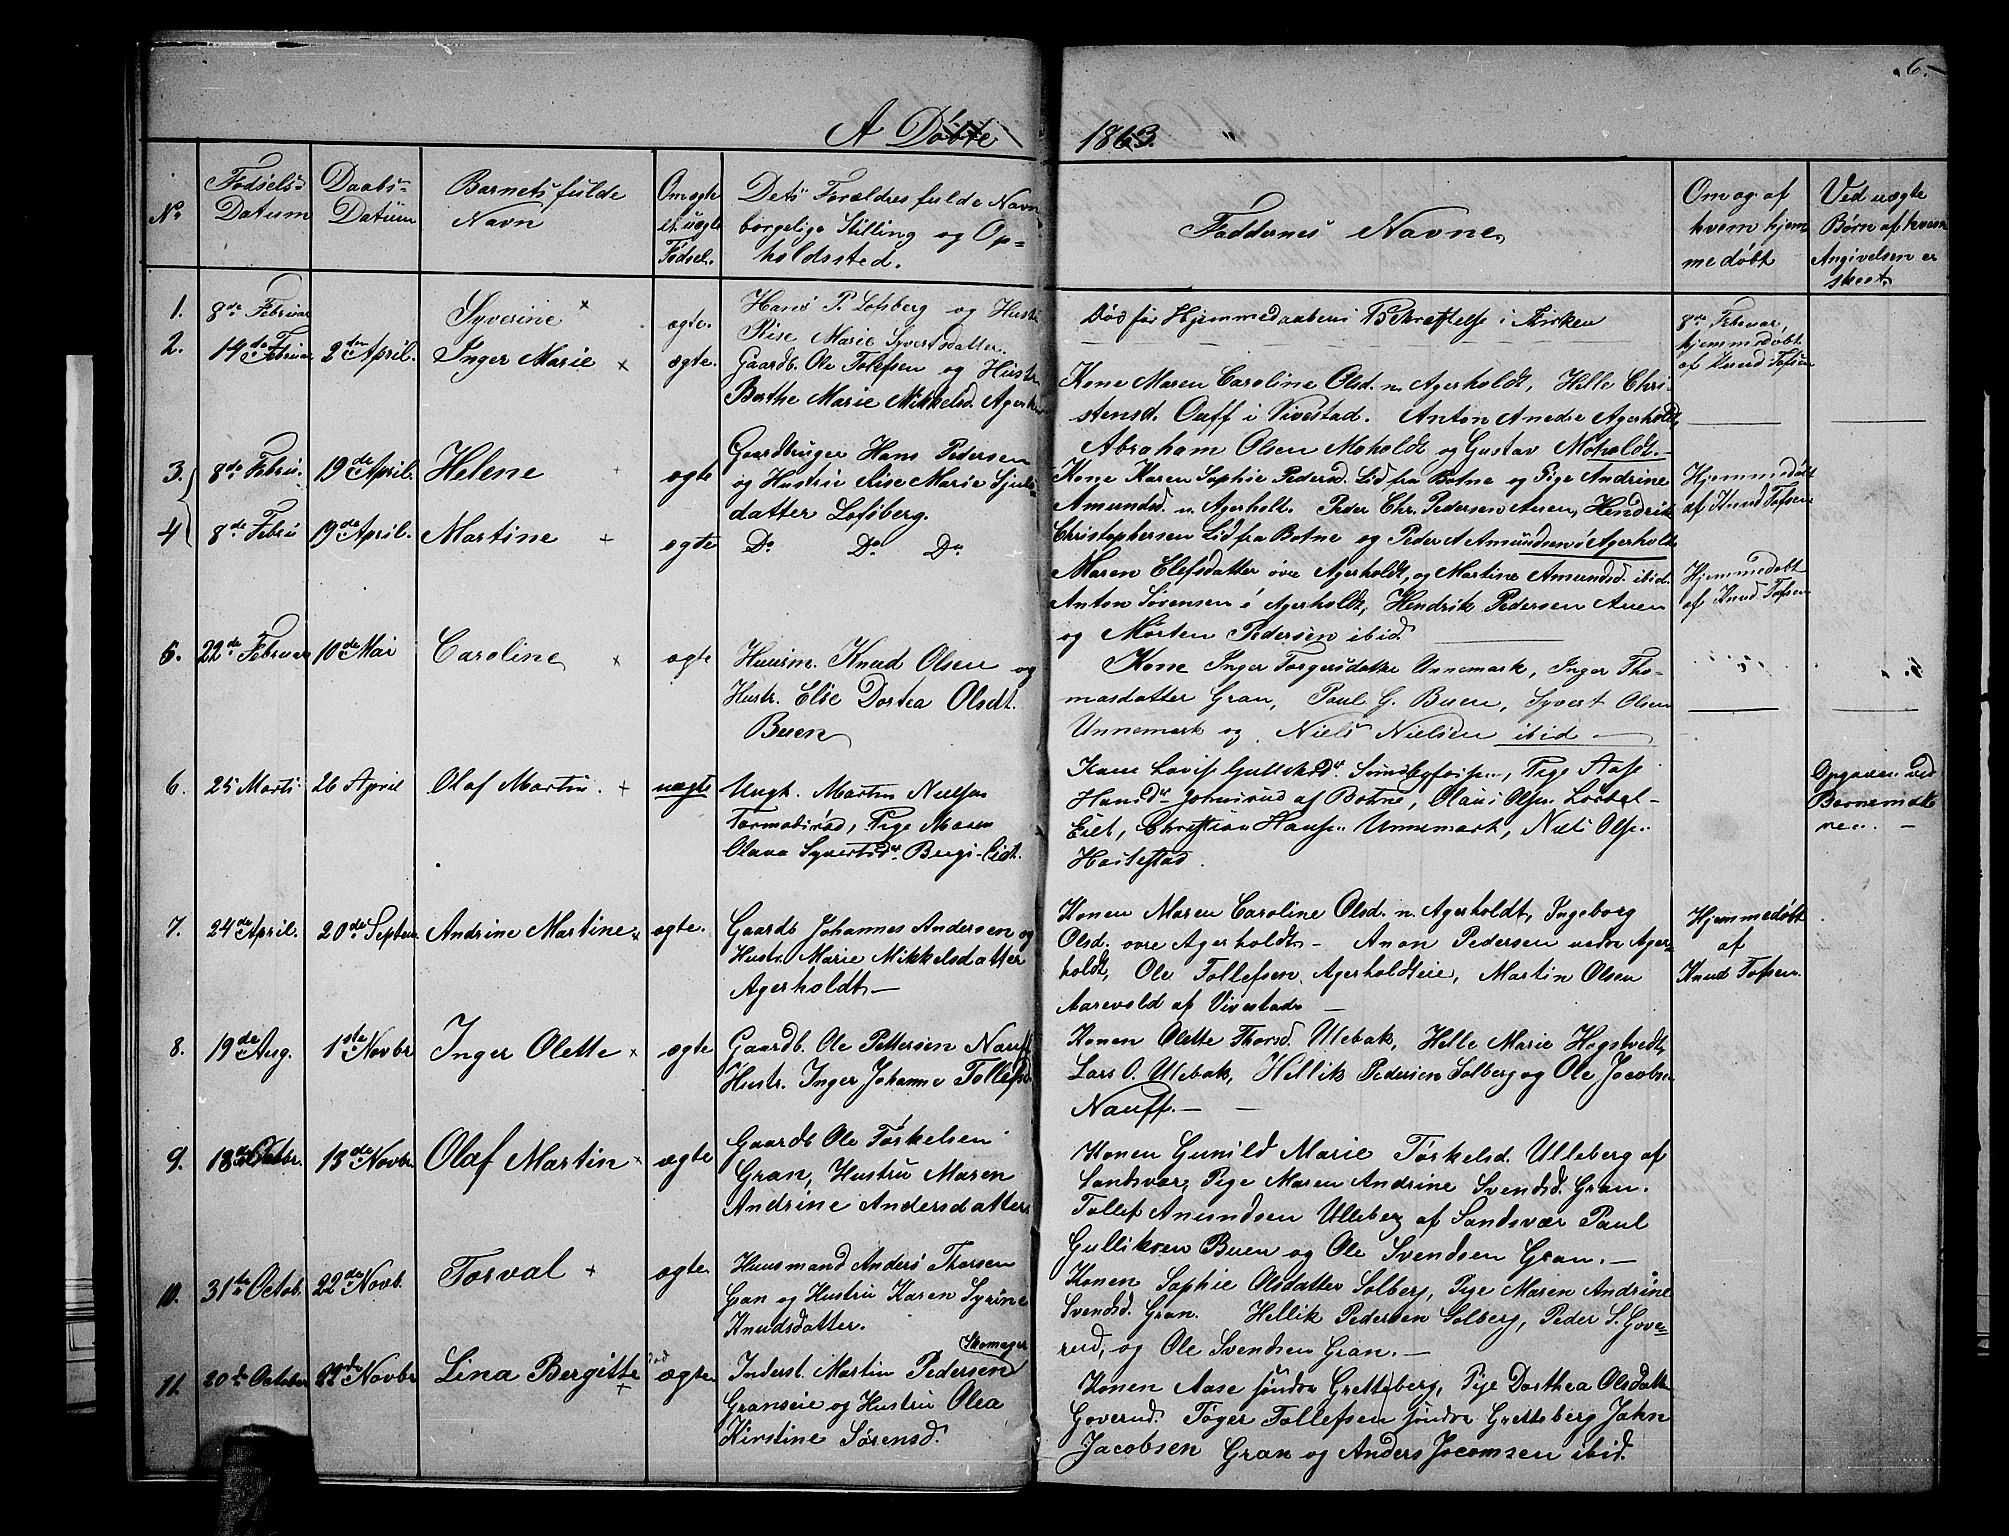 6.
A Døbte
1863.
No
Fødsels-
Datum
Daabs-
Datum
Barnets fulde
Navn
Om ægte
el. uægte
Fødsel.
Dets Forældres fulde Navn
borgelige Stilling og Op-
holdssted.
Faddernes Navne
Om og af
hvem hjem-
medøbt
Ved uægte
Børn af hvem
Angivelsen er
skeet
1. 8de Februar Syverine ægte.
Hans P. Lofsberg og Hustr
Marie Syvertsdatter.
Død før Hjemmedaabens Bekræftelse i Kirken
8de Februar,
hjemmedøbt
af Knud Tofsen
2. 14de Februar 2den April. Inger Marie ægte.
Gaardb. Ole Tolefsen og Hustr
Berthe Marie Mikkelsd. Agerh
Kone Maren Caroline Olsd. n. Agerholdt, Helle Chri-
stensd. i Vivestad. Anton Andre Agerholdt,
Abraham Olsen Moholdt og Gustav Moholdt.
3. 8de Febru. 19de April. Helene ægte
Gaardbruger Hans Pedersen
og Hustru Marie
datter Lofsberg.
Kone Karen Sophie Pedersd. Lid fra Botne og Pige Andrine
Amundsd. n. Agerholt. Peder Chr. Pedersen Auen, Hendrik
Christophersen Lid fra Botne og Peder A Amundsen i Agerholt
Hjemmedøbt
af Knud Tofsen
4. 8de Febru 19de April. Martine ægte
Do Do Do
Maren Elefsdatter øvre Agerholdt, og Martine Amundsd. ibid.
Anton Sørensen i Agerholdt, Hendrik Pedersen Auen
og Morten Pedersen ibid.
Hjemmedøbt
af Knud Tofsen
5. 22de Februar 10de Mai Caroline ægte
Huusm. Knud Olsen og
Hustr. Else Dortea Olsdt.
Buen
Kone Inger Torgersdatter Unnemark, Inger Tho-
masdatter Gran, Paul G. Buen, Syvert Olsen
Unnemark og Niels Nielsen ibid
6. 25 Marts 26 April Olaf Martin. uægte
Ungk. Martin Nielsen
Pige Maren
Olava Syvertsdr.
Kone Lovise Pige Aase
Hansdr. af Botne, Olaus Olsen
Eiet, Christian Hansen Unnemark, Niels Olsen
Opgaven ved
7. 24de April. 20de Septem. Andrine Martine ægte.
Gaardb Johannes Andersen og
Hustr. Marie Mikkelsdatter
Agerholdt
Konen Maren Caroline Olsd. n. Agerholdt, Ingeborg
Olsd. øvre Agerholdt. Anon Pedersen nedre Ager-
holdt, Ole Tollefsen Agerholdteie, Martin Olsen
Aarevold af Vivestad
Hjemmedøbt
af
Knud Tofsen.
8. 19de Aug. 1ste Novbr Inger Olette ægte
Gaardb. Ole Pettersen Nauff
Hustr. Inger Johanne Tollefs
Konen Olette Thorsd. Ulebak, Helle Marie Hogstvedt,
Lars O. Ulebak, Hellik Pedersen Solberg og Ole Jacobsen
Nauff.
9. 18de Octbr. 13de Novbr Olaf Martin ægte
Gaardb Ole Torkelsen
Gran, Hustru Maren
Andrine Andersdatter
Konen Gunild Marie Torkelsd. Ulleberg af
Sandsvær, Pige Maren Andrine Svendsd. Gran.
Tollef Anundsen Ulleberg af Sandsvær Paul
Gulliksen Buen og Ole Svendsen Gran.
10. 31te Octob. 22de Novb. Torval ægte
Huusmand Anders Thorsen
Gran og Hustru Karen Syrine
Knudsdatter.
Konen Sophie Olsdatter Solberg, Pige Maren Andrine
Svendsd. Gran. Hellik Pedersen Solberg, Peder S. Gove-
rud, og Ole Svendsen Gran.
11. 20de October 22de Novbr Lina Bergitte død ægte
Skomager
Inderst. Martin Pedersen
Graneie og Hustru Olea
Kirstine Sørensd.
Konen Aase søndre Gretteberg, Pige Dorthea Olsdatter
Goverud. Tøger Tollefsen søndre Gretteberg John
Jacobsen Gran og Anders Jocomsen ibid.